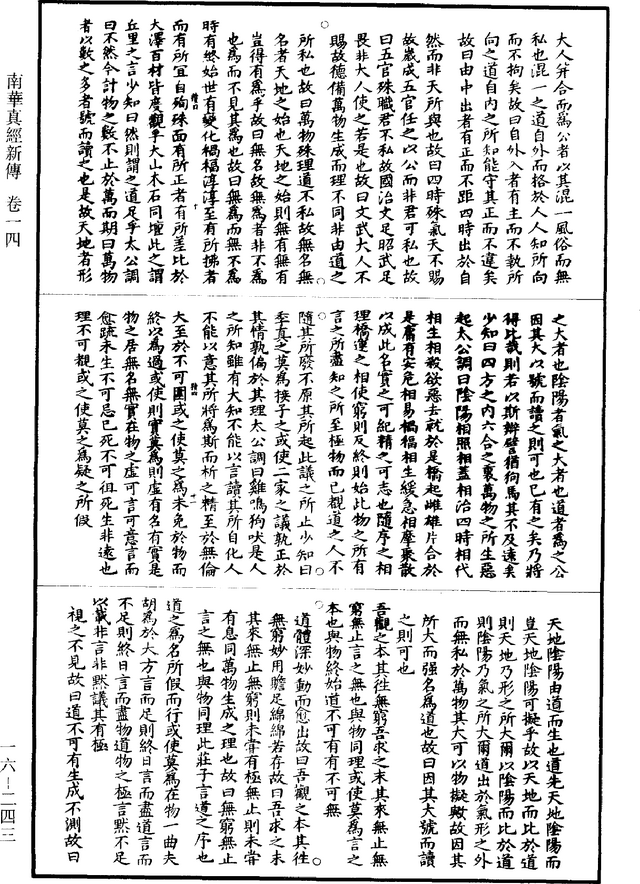 南華真經新傳　卷一四
一六－二四三
大人幷合而爲公者以其混一風俗而無
私也混一之道自外而格於人人知所向
而不拘矣故曰自外入者有主而不執所
向之道自內之所知能守其正而不違矣
故曰由中出者有正而不距四時出於自
然而非天所與也故曰四時殊氣天不賜
故歲成五官任之以公而非君可私也故
曰五官殊職君不私故國治文足昭武足
畏非大人使之若是也故曰文武大人不
賜故德備萬物生成而理不同非由道之
所私也故曰萬物殊理道不私故無名無
名者天地之始也天地之始則無有無有
豈得有爲乎故曰無名故無爲者非不爲
也爲而不見其爲也故曰無爲而無不爲
時有終始世有變化禍福淳淳至有所拂者
而有所宜自殉殊面有所正者有所差比於
大澤百材皆度觀乎大山木石同壇此之謂
丘里之言少知曰然則謂之道足乎太公調
曰不然今計物之數不止於萬而期曰萬物
者以數之多者號而讀之也是故天地者形
之大者也陰陽者氣之大者也道者爲之公
因其大以號而讀之則可也已有之矣乃將
得比哉則若以斯辯譬猶狗馬其不及遠矣
少知曰四方之內六合之裏萬物之所生惡
起太公調曰陰陽相照相蓋相治四時相代
相生相殺欲惡去就於是橋起雌雄片合於
是庸有安危相易禍福相生緩急相摩聚散
以成此名實之可紀精之可志也隨序之相
理橋運之相使窮則反終則始比物之所有
言之所盡知之所至極物而已覩道之人不
隨其所廢不原其所起此議之所止少知曰
季真之莫爲接子之或使二家之議孰正於
其情孰偏於其理太公調曰雞鳴狗吠是人
之所知雖有大知不能以言讀其所自化人
不能以意其所將爲斯而析之精至於無倫
大至於不可圍或之使莫之爲未免於物而
終以爲過或使則實莫爲則虛有名有實是
物之居無名無實在物之虛可言可意言而
愈疏未生不可忌已死不可徂死生非遠也
理不可覩或之使莫之爲疑之所假
天地陰陽由道而生也道先天地陰陽而
豈天地陰陽可擬乎故以天地而比於道
則天地乃形之所大爾以陰陽而比於道
則陰陽乃氣之所大爾道出於氣形之外
而無私於萬物其大可以物擬歟故因其
所大而强名爲道也故曰因其大號而讀
之則可也
吾觀之本其往無窮吾求之末其來無止無
窮無止言之無也與物同理或使莫爲言之
本也與物終始道不可有有不可無
道體深妙動而愈出故曰吾觀之本其往
無窮妙用贍足綿綿若存故曰吾求之末
其來無止無窮則未嘗有極無止則未嘗
有息同萬物生成之理也故曰無窮無止
言之無也與物同理此莊子言道之序也
道之爲名所假而行或使莫爲在物一曲夫
胡爲於大方言而足則終日言而盡道言而
不足則終日言而盡物道物之極言默不足
以載非言非默議其有極
視之不見故曰道不可有生成不測故曰